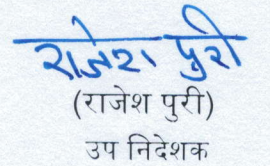 राजेश पुरी
(राजेश पुरी)
उप निदेशक